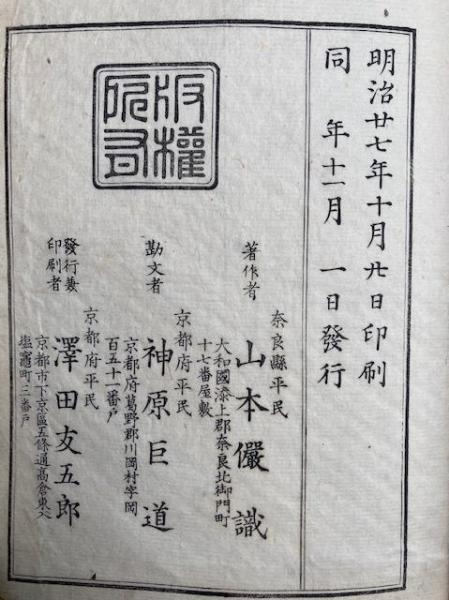 明治廿七年十月廿日印刷
同　年十一月　一日發行
版權所有
著作者
奈良縣平民
山本儼識
大和國添上郡奈良北御門町
十七番屋敷
勘文者
京都府平民
神原巨道
京都府葛野郡川岡村字岡
百五十一番戸
發行兼
印刷者
京都府平民
澤田友五郎
京都市下京區五條通高倉東入
塩竈町三番戸